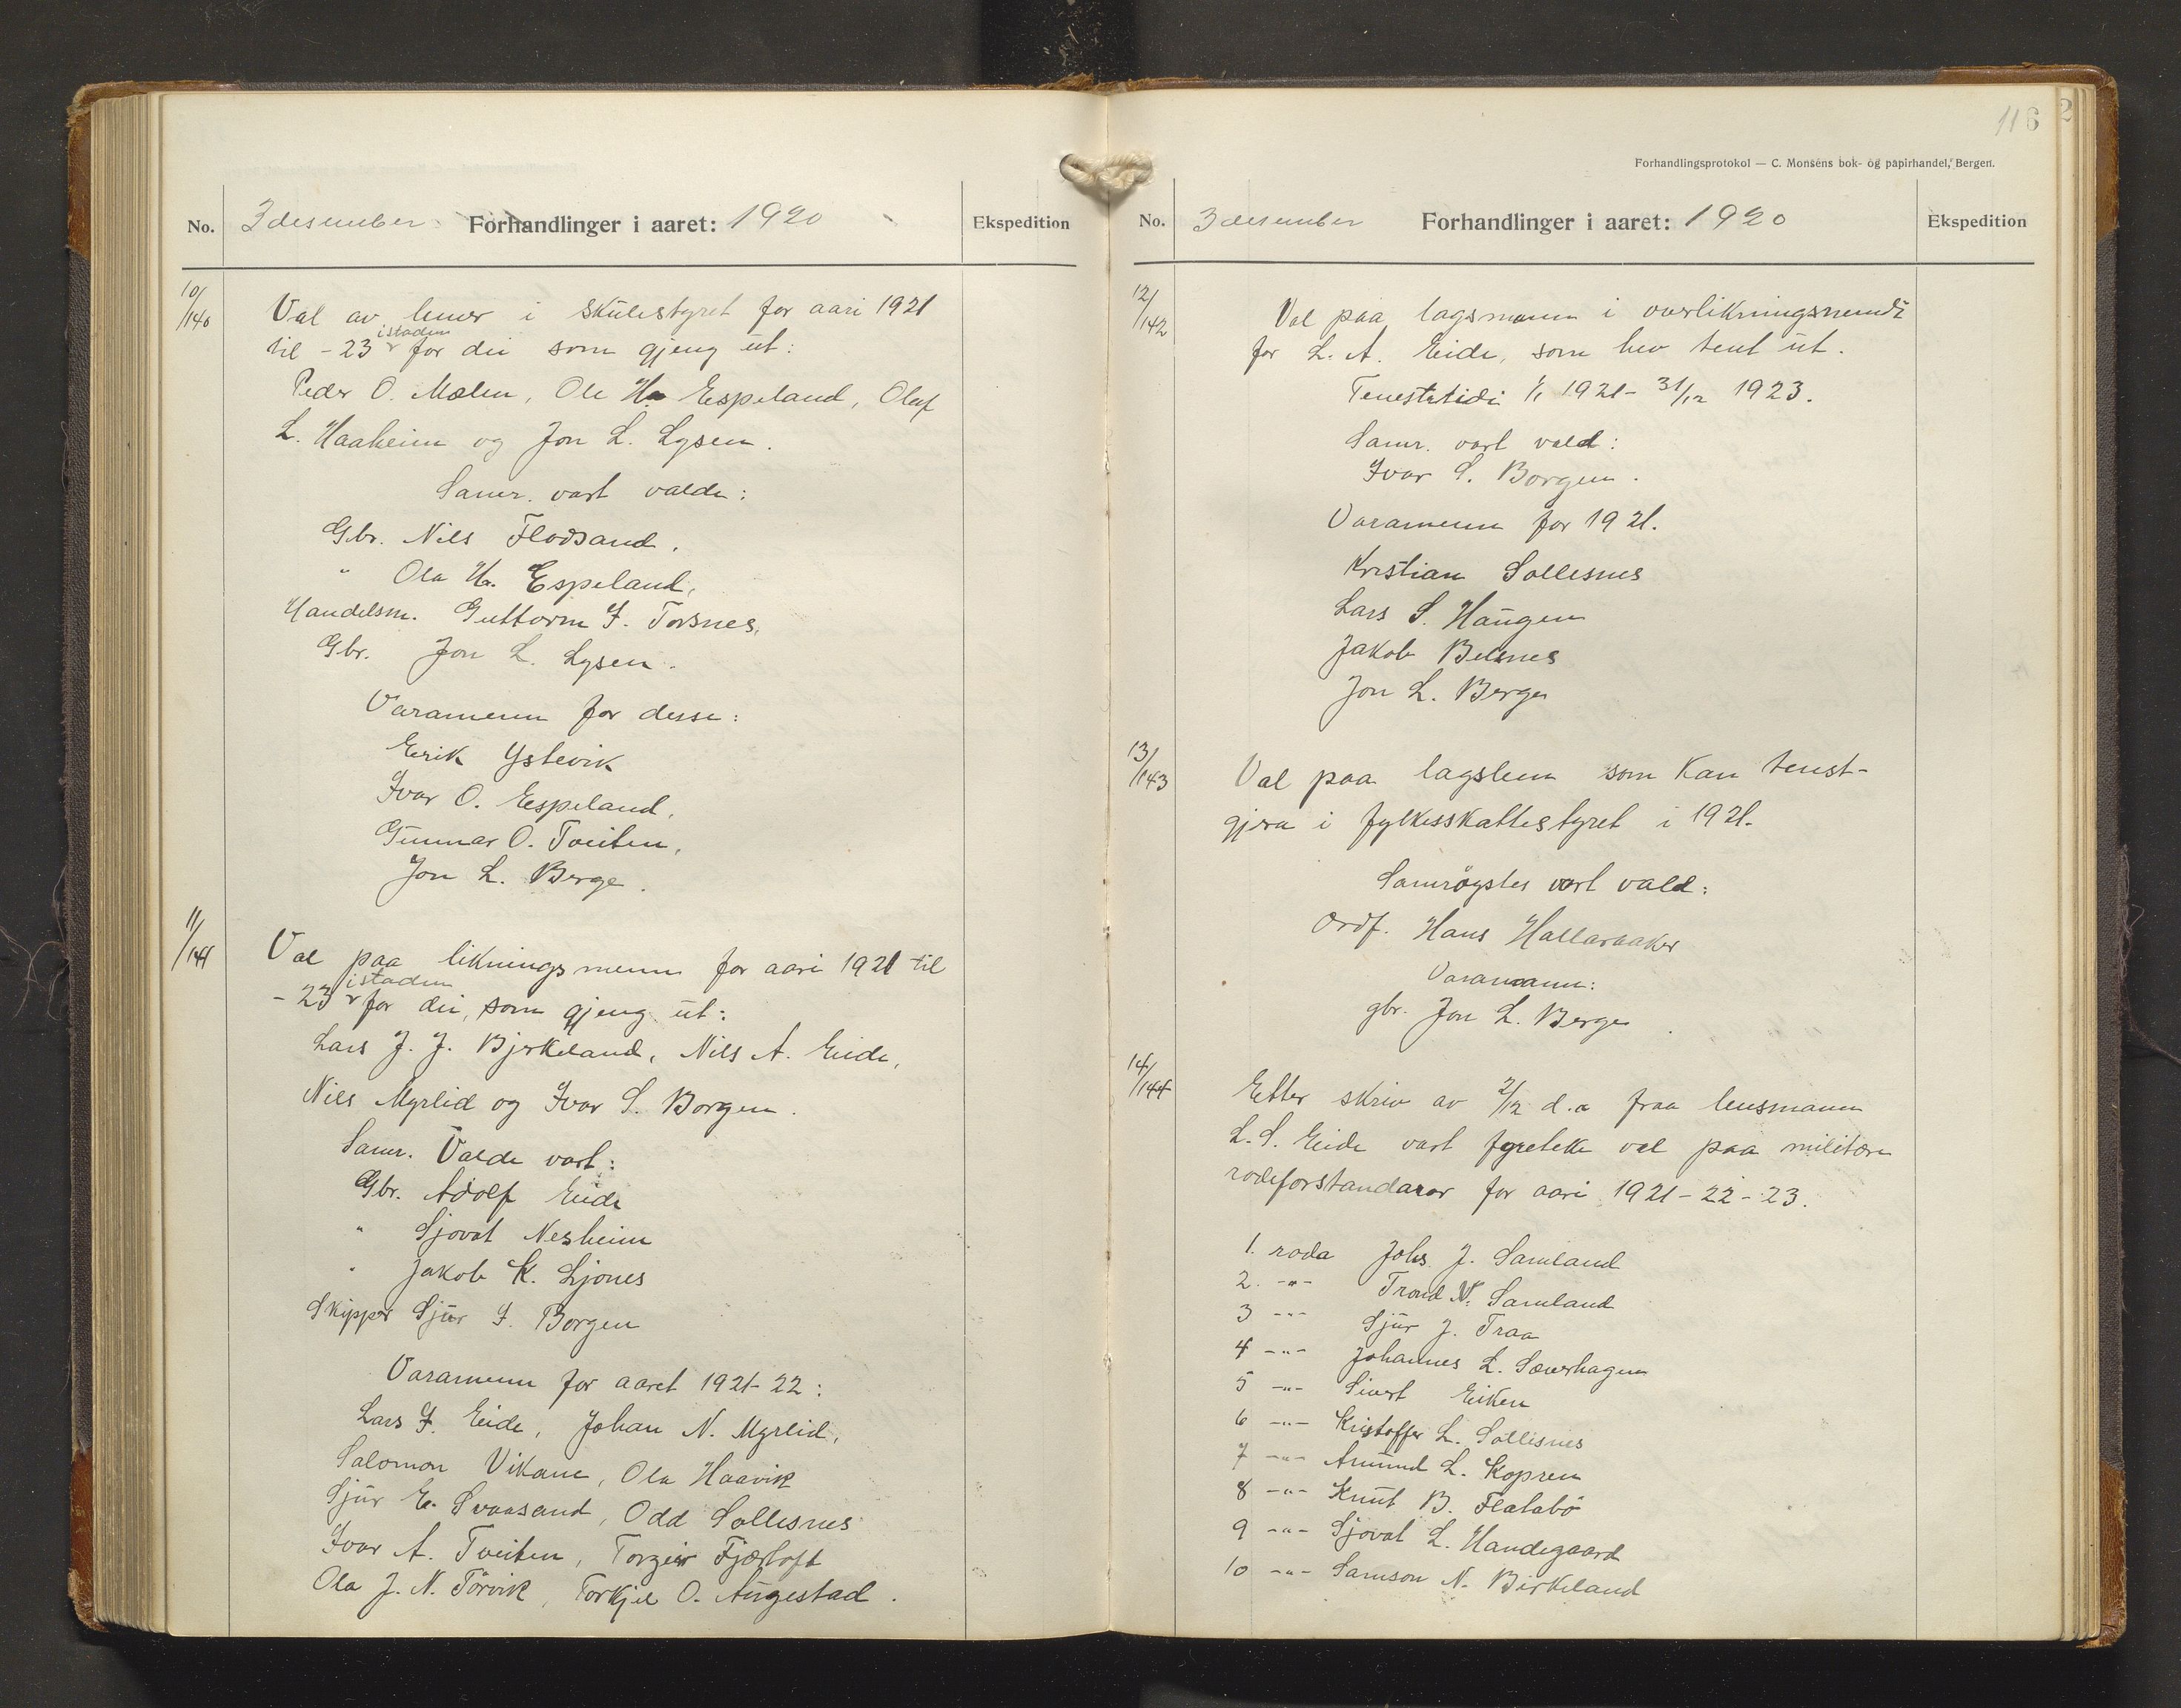 No. 3 desember Forhandlinger i aaret: 1920 Ekspedition
10/140 Val av lemer i skulestyret for aari 1921
istaden
til -23 for dei som gjeng ut:
Peder O. Mælen, Ole H. Espeland, Olaf
L. Haaheim og Jon L. Lysen.
Samr. vart valde:
Gbr. Nils Flodsand.
" Ola H. Espeland,
Handelsm. Guttorm J. Torsnes,
Gbr. Jon L. Lysen.
Varamenn for desse:
Eirik Ystevik
Ivar O. Espeland,
Gunnar O. Tveiten,
Jon L. Berge.
11/141 Val paa likningsmenn for aari 1921 til
istaden
-23 for dei, som gjeng ut:
Lars J. J. Bjrkeland, Nils A. Eide,
Nils Myrlid og Ivar S. Borgen.
Samr. Valde vart:
Gbr. Adolf Eide
" Sjovat Nesheim
" Jakob K. Ljones
Skipper Sjur I. Borgen
Varamenn for aaret 1921-22:
Lars J. Eide, Johan N. Myrlid,
Salomon Vikane, Ola Haavik
Sjur E. Svaasand, Odd Sollesnes
Ivar A. Tveiten, Torgeir Fjærtoft
Ola J. N. Tørvik, Torkjel O. Augestad.
116
2
Forhandlingsprotokol — C. Monsens bok- og papirhandel, Bergen.
No. 3 desember Forhandlinger i aaret: 1920 Ekspedition
12/142 Val paa lagsmann i overlikningsnemdi
for L. A. Eide, som hev tent ut.
Tenestetidi 1/1 1921 - 31/12 1923.
Samr. vart vald:
Ivar S. Borgen.
Varamenn for 1921.
Kristian Sollesnes
Lars S. Haugen
Jakob Belsnes
Jon L. Berge
13/143 Val paa lagslem som kan tenst-
gjera i fylkesskattestyret i 1921.
Samrøystes vart vald:
Ordf. Hans Hallaraaker
Varamann:
gbr. Jon L. Berge.
14/144 Etter skriv av 2/12 d.a fraa lensmann
L. S. Eide vart fyreteke val paa militære
rodeforstandarar for aari 1921-22-23.
1. roda Johs. J. Samland
2. -"- Trond N. Samland
3 -"- Sjur J. Traa
4 -"- Johannes L. Sæverhagen
5 -"- Sivert Eiken
6 -"- Kristoffer L. Sollesnes
7 -"- Amund L. Kopren
8 -"- Knut B. Flatabø
9 -"- Sjovat L. Handegaard
10 -"- Samson N. Birkeland